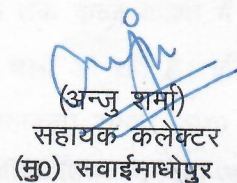 (अन्जु शर्मा)
सहायक कलेक्टर
(मु0) सवाईमाधोपुर